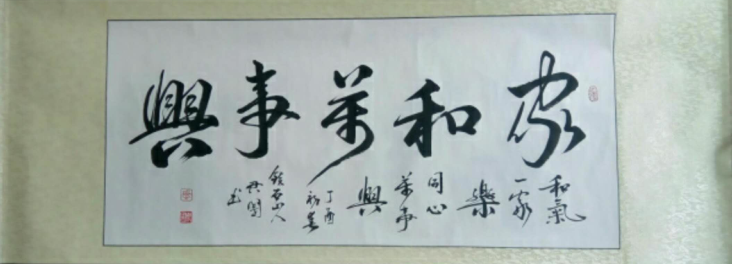 家和萬事興
和氣
一家
樂
同心
萬事
興
丁酉
初春
山人
书